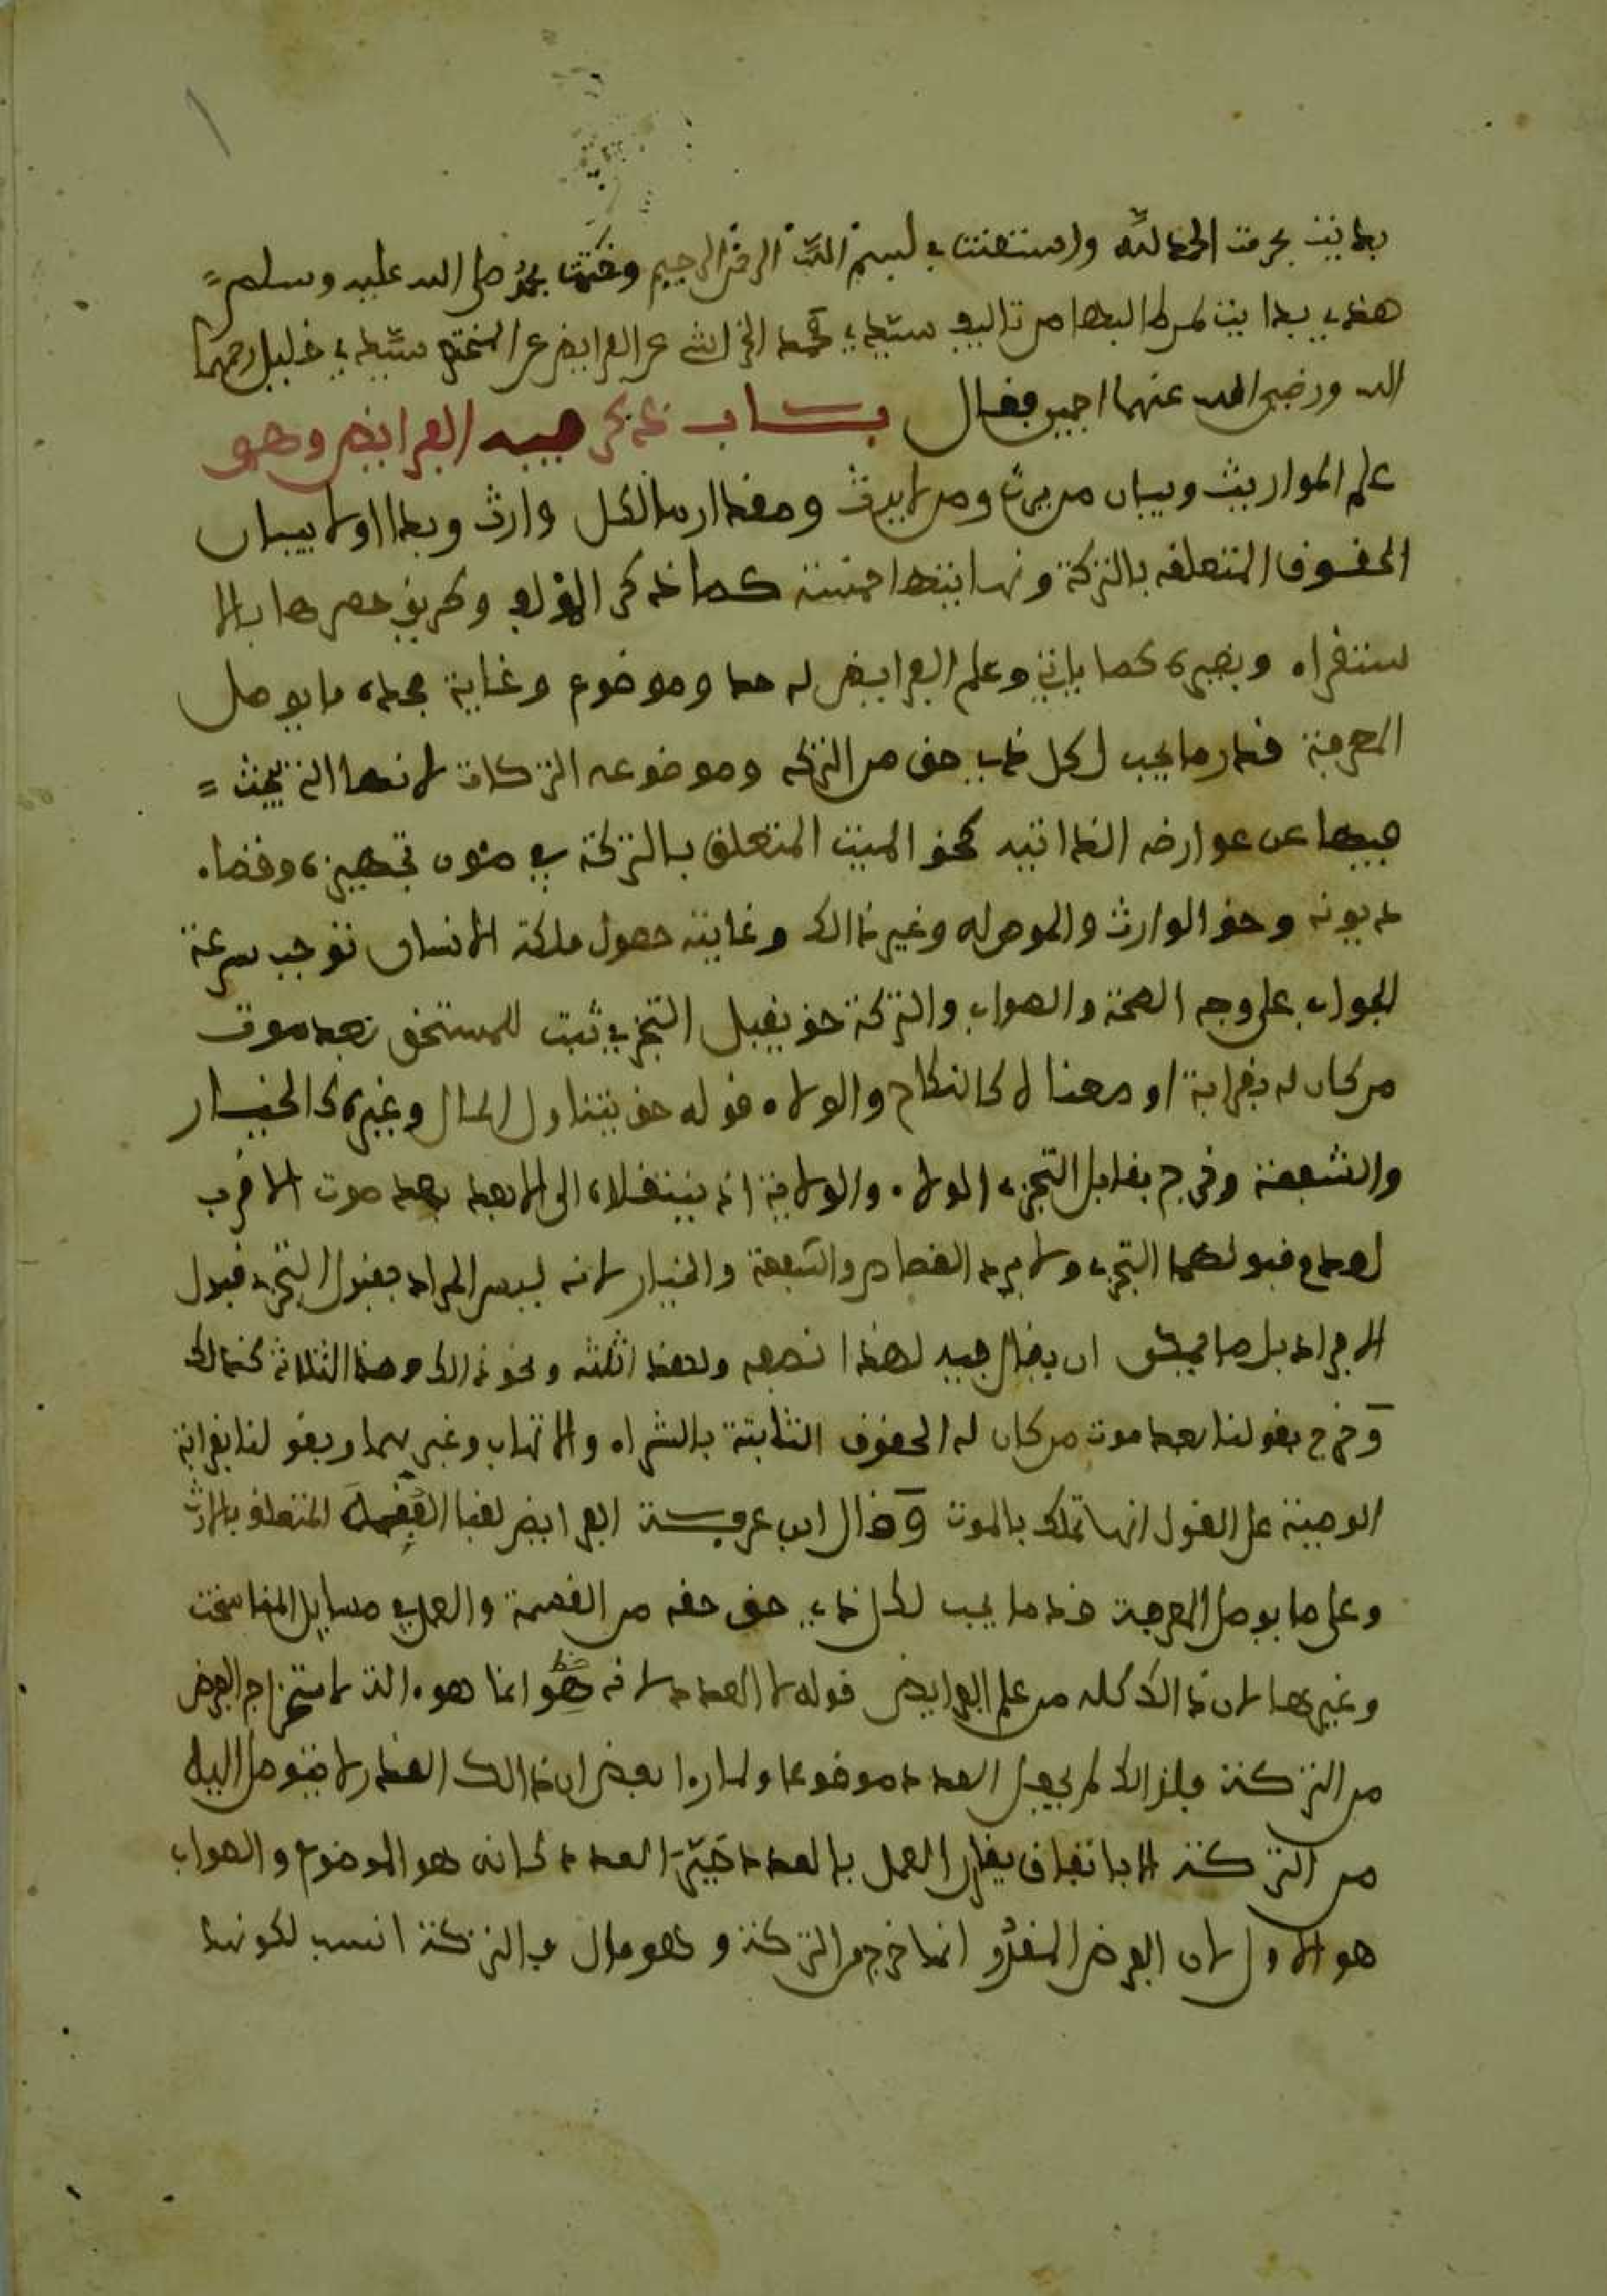 بدايت بحرمت الحمد لله واستعنت ببسم الله الرحمن الرحيم وختمت بمحمد صلى الله عليه وسلم =
هذه بدايت لمن طالبها من تاليف سيدي محمد الخراشي عن الفرايض عن المختصر سيدي خليل رحمهما
الله ورضي الله عنهما اجمعين فقال بــاب ذكر فيه الفرايض وهو
علم المواريث وبيان من يرث ومن لا يرث ومقدار ما لكل وارث وبدا اولا ببيان
الحقوق المتعلقه بالتركة ونهايتها خمسة كما ذكر المؤلف وطريق حصرها بالا
ستقراء وبغيره كما ياتي وعلم الفرايض له حد وموضوع وغاية فحده ما يوصل
لمعرفة قدر ما يجب لكل ذي حق من التركه وموضوعه التركات لانها التي يبحث =
فيها عن عوارضه الذاتيه كحق الميت المتعلق بالتركة في مئون تجهيزه وقضاء
ديونه وحق الوارث والموصى له وغير ذالك وغايته حصول ملكة الانسان توجب سرعة
الجواب على وجه الصحة والصواب والتركة حق يقبل التجزي ثبت للمستحق بعد موت
من كان له بقرابة او معناه كالنكاح والولاء قوله حق يتناول المال وغيره كالخيار
والشفعة وخرج بقابل التجزء الولاء والولاية اذ ينتقلان الى الابعد بعد موت الاقرب
لعدم قبولهما التجزء ولا يرد القصاص والشفعة والخيار لانه ليس المراد بقبول التجزء قبول
الافراد بل ما يمكن ان يقال فيه لهذا نصفه ولهذا ثلثه ونحو ذالك وهذه الثلاثة كذالك
وخرج بقولنا بعد موت من كان له الحقوق الثابتة بالشراء والاتهاب وغيرهما وبقولنا بقرابة
الوصية على القول انها تملك بالموت وقال ابن عرفــة الفرايض لقبا الفقه المتعلق بالارث
وعلى ما يوصل لمعرفة قدر ما يجب لكل ذي حق حقه من القسمة والعمل في مسايل المناسخت
وغيرها لان ذالك كله من علم الفرايض قوله لا العدد لانه هو انما هو الة لاستخراج الفرض
من التركة فلذالك لم يجعل العدد موضوعا ولما راا بعض ان ذالك القدر لا يتوصل اليه
من التركة الا باتفاق يقلل العمل بالعدد حتى العدد كانه هو الموضوع والصواب
هو الاول لان الفرض المقدر انما خرج من التركة وهو مال فالتركة انسب لكونها